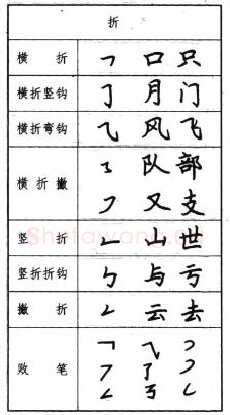 折
横 折 ㇕ 口 只
横折竖钩 ㇆ 月 门
横折弯钩 ⺄ 风 飞
横折撇 ㇋ 队 部
㇇ 又 支
竖 折 ㇗ 山 世
竖折折钩 ㇉ 与 亏
撇 折 ㇜ 云 去
败笔